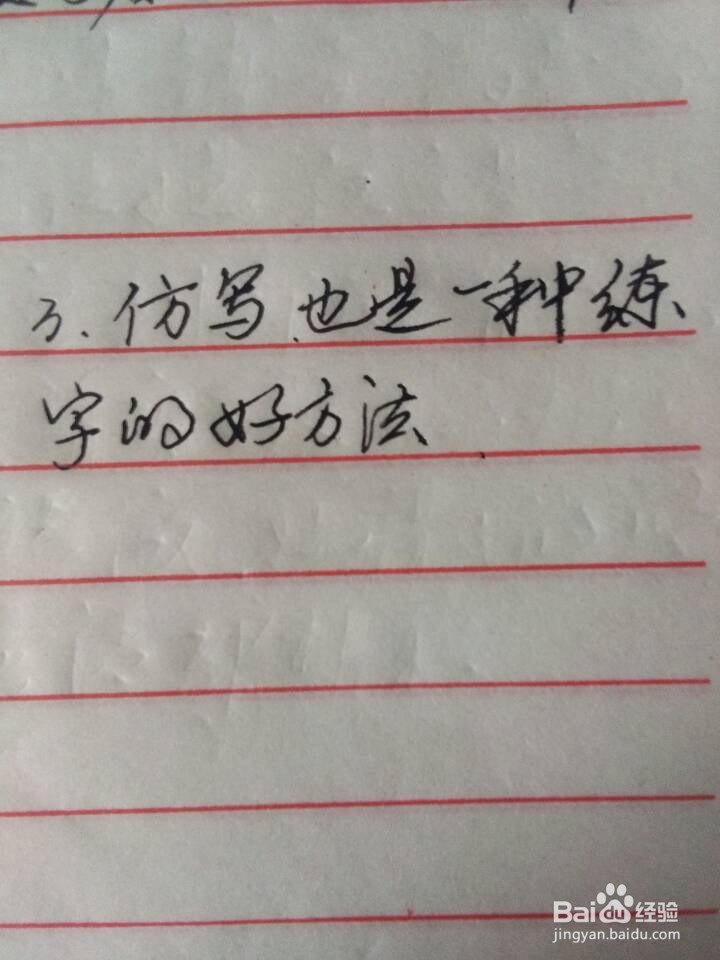 3、仿写也是一种练
字的好方法.
Baidu经验
jingyan.baidu.com